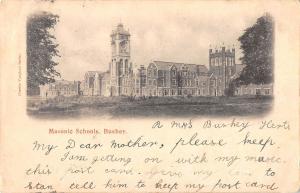 Masonic Schools, Bushey.
R M S Bushey Herts
My Dear Mother, please keep
I am getting on with my music
this post card
Stan tell him to keep my post card